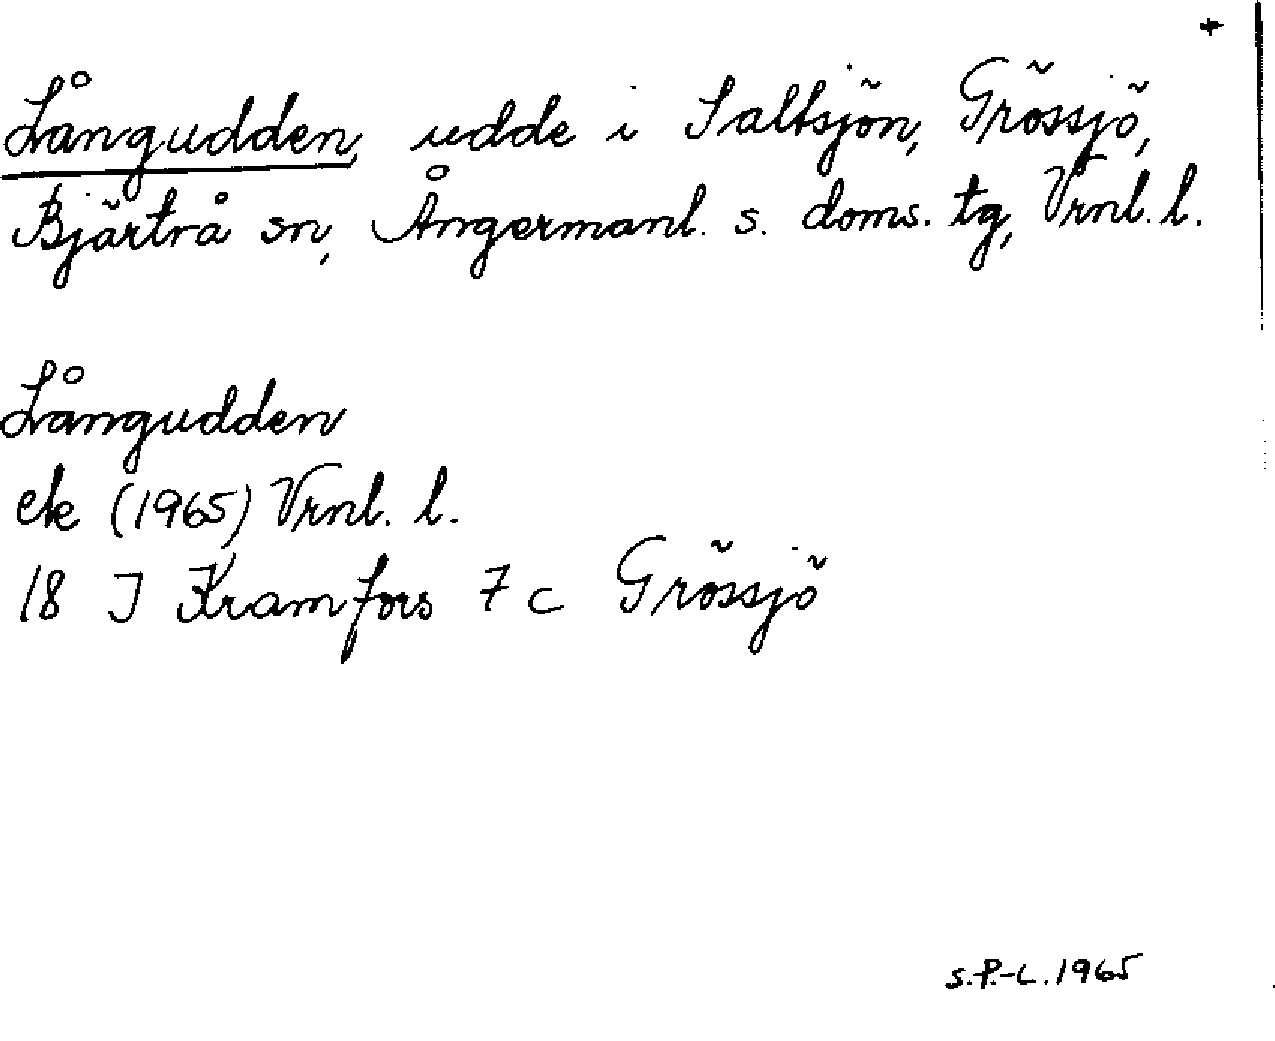 Långudden, udde i Saltsjön, Grössjö,
Bjärtrå sn, Ångermanl. s. doms. tg, Vrnl. l.
Långudden
ek (1965) Vrnl. l.
18 I Kramfors 7 c Grössjö
S.P.-L. 1965